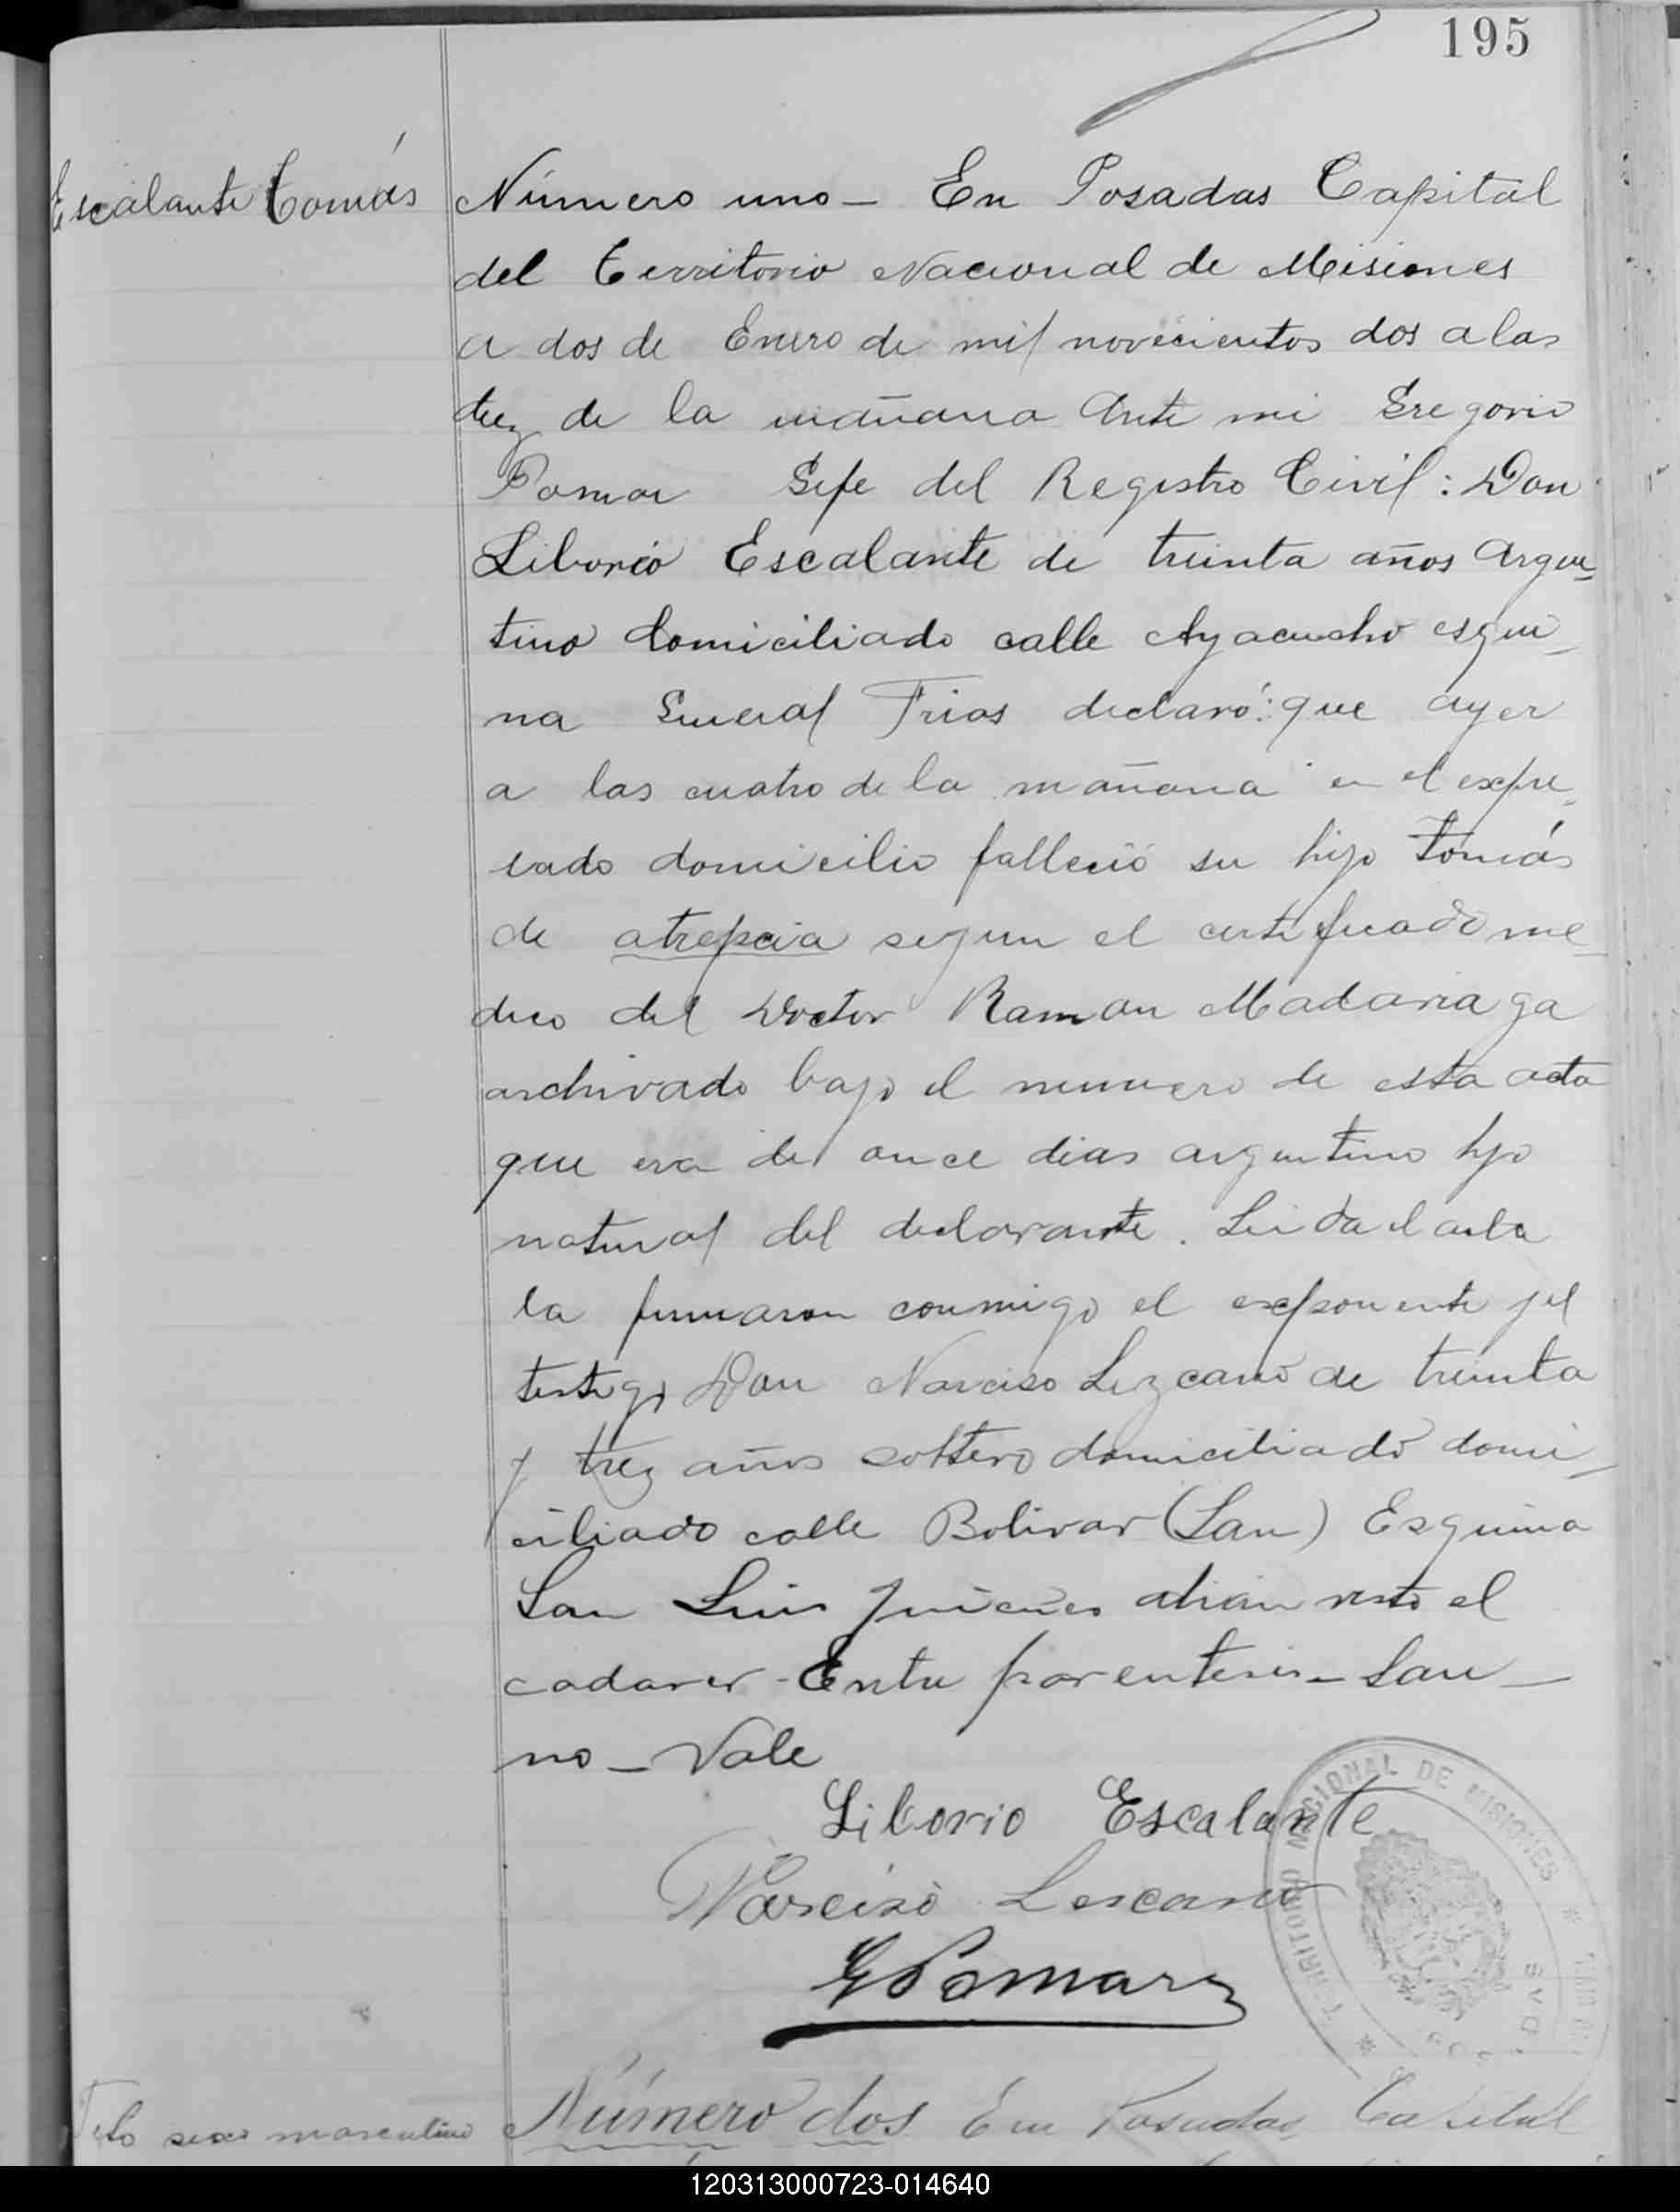 195
Escalante Tomás
Número uno — En Posadas Capital
del Territorio Nacional de Misiones
a dos de Enero de mil novecientos dos a las
diez de la mañana Ante mi Gregorio
Pomar Gefe del Registro Civil: Don
Liborio Escalante de treinta años Argen-
tino domiciliado calle Ayacucho esqui-
na General Frias declaró: que ayer
a las cuatro de la mañana en el expre-
sado domicilio falleció su hijo Tomás
de atrepcia segun el certificado me-
dico del Doctor Ramon Madariaga
archivado bajo el numero de esta acta
que era de once dias argentino hijo
natural del declarante. Leida el acta
la firmaron conmigo el exponente y el
testigo Don Narciso Lezcano de treinta
y trez años soltero domiciliado domi-
ciliado calle Bolivar (San) Esquina
San Luis quienes han visto el
cadaver - Entre parentesis - San —
no — Vale
Liborio Escalante
Narciso Lescano
G Pomar
TERRITORIO NACIONAL DE MISIONES
POSADAS
Feto sexo masculino
Número dos En Posadas Capital
120313000723-014640